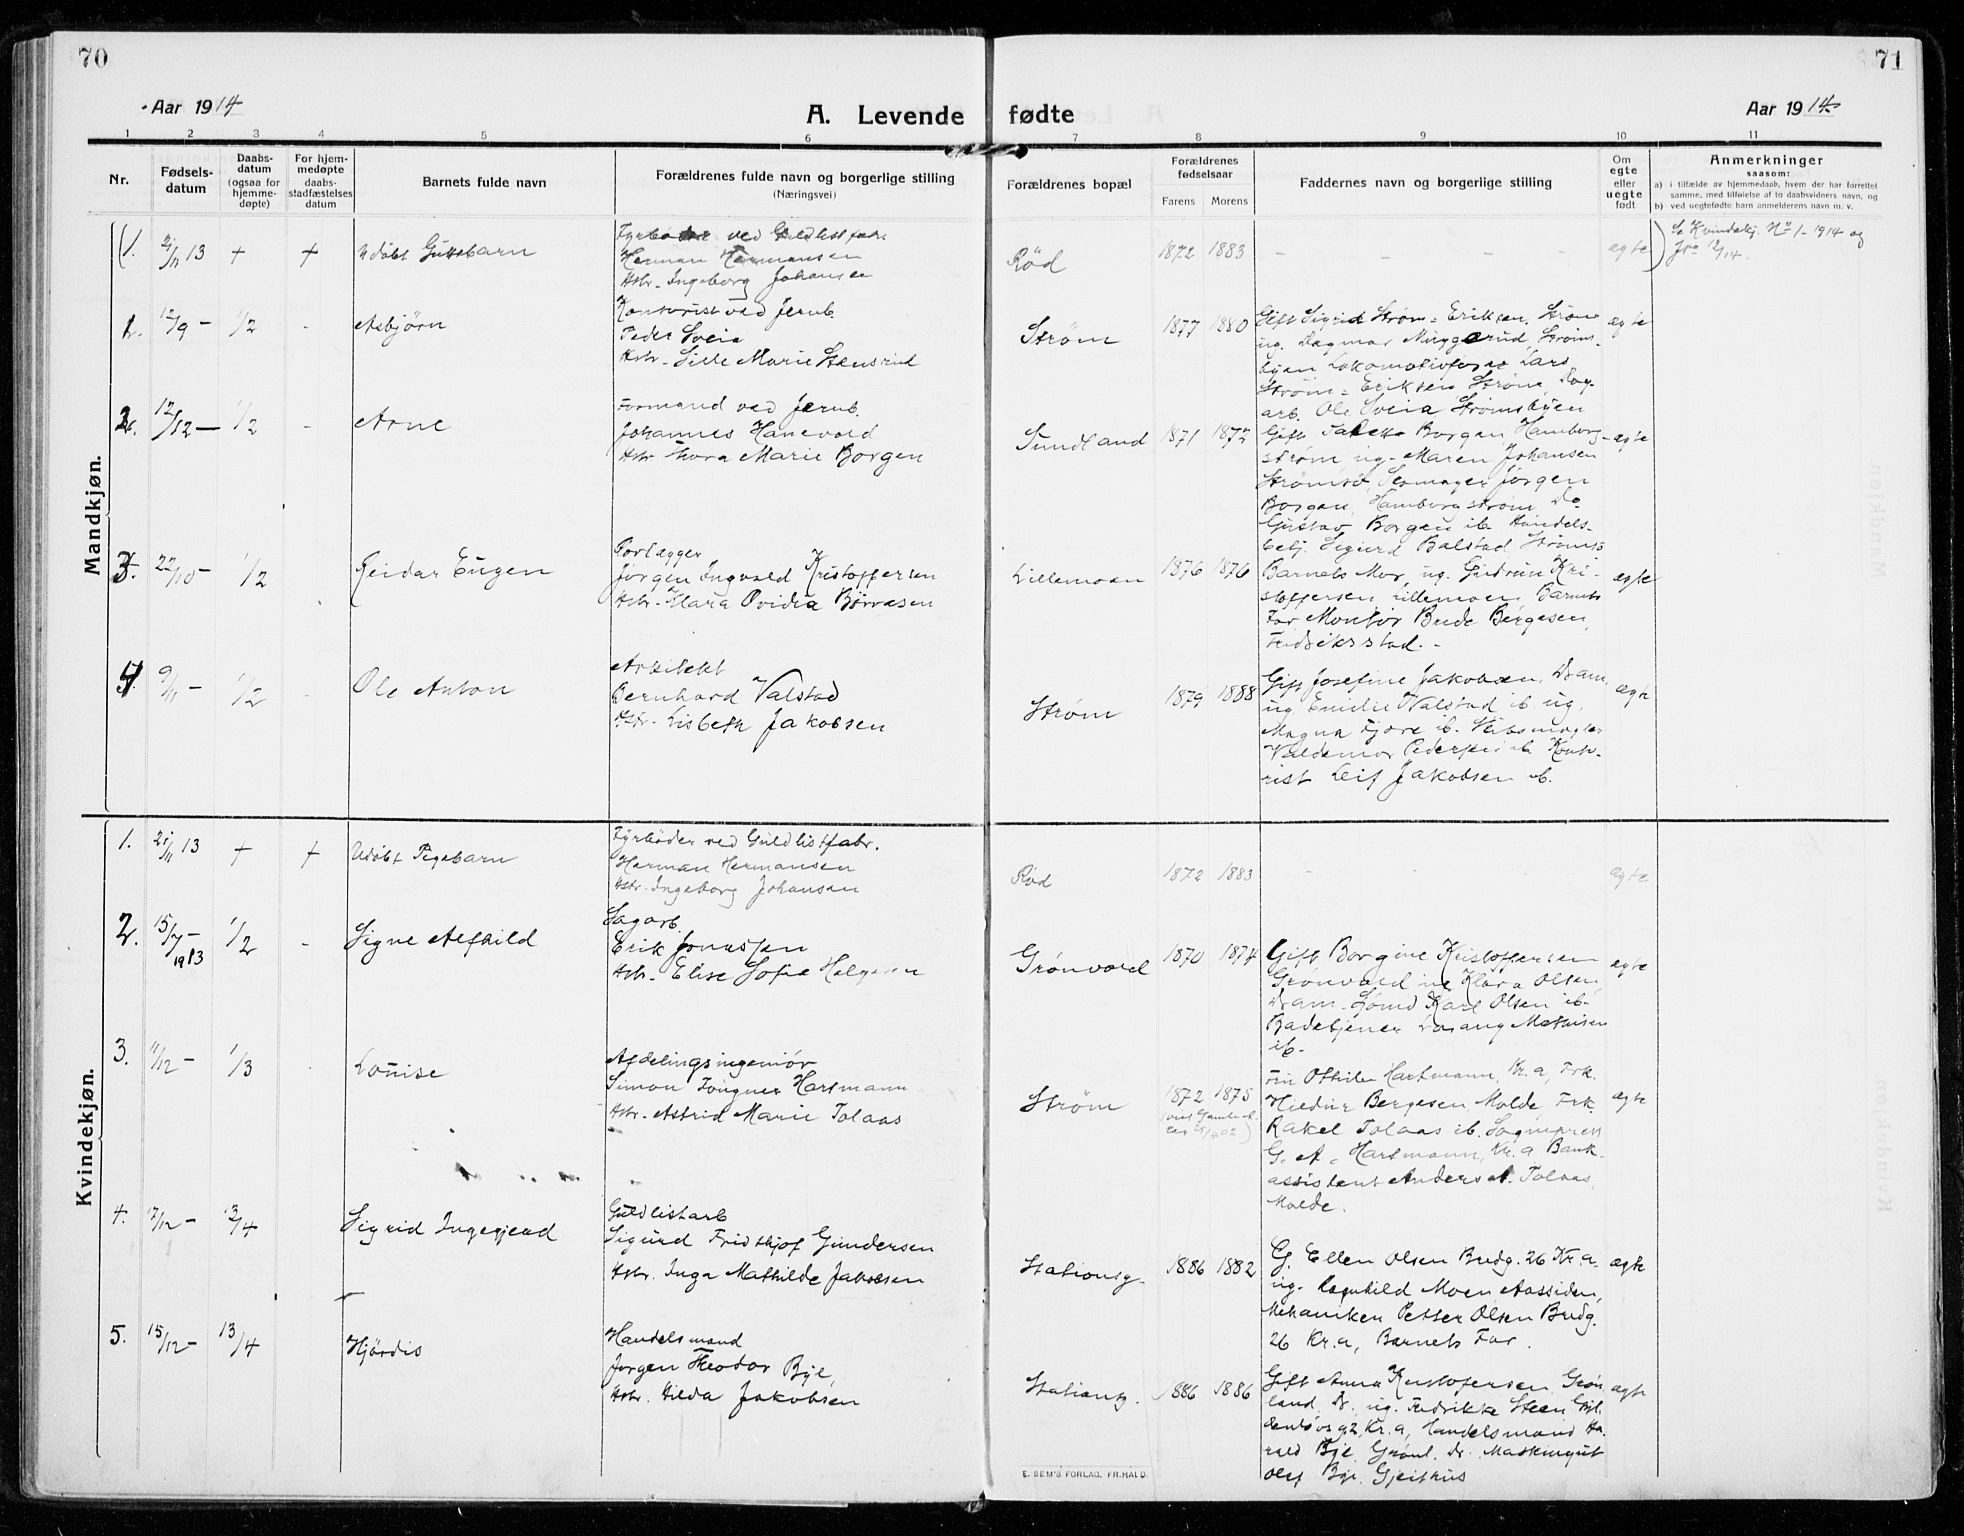 70
71
Aar 1914
A. Levende fødte
Aar 1914
1 2 3 4 5 6 7 8 9 10 11
Nr.
Fødsels-
datum
Daabs-
datum
(ogsaa for
hjemme-
døpte)
For hjem-
medøpte
daabs-
stadfæstelses
datum
Barnets fulde navn
Forældrenes fulde navn og borgerlige stilling
(Næringsvei)
Forældrenes bopæl
Forældrenes
fødselsaar
Farens Morens
Faddernes navn og borgerlige stilling
Om
egte
eller
uegte
født
Anmerkninger
saasom:
a) i tilfælde av hjemmedaab, hvem der har forrettet
samme, med tilføielse af to daabsvidners navn, og
b) ved uegtefødte barn anmelderens navn m. v.
Mandkjøn.
1. 2/11 13 + + Udøbt Guttebarn
Fyrbøder ved Guldlistfabr.
Herman Hermansen
Hstr. Ingeborg Johansen
Rød 1872 1883 - - - - egte
Se Kvindekj. No 1 - 1914 og
12/14.
1. 12/9 - 1/2 - Asbjørn
Kontorist ved Jernb.
Peder Sveia
Hstr. Sille Marie Stensrud
Strøm 1877 1880 ægte
Gift Sigrid Strøm-Eriksen, Strøm
ug. Dagmar Muggerud, Strøms-
byen Lokomotivfører Lars
Strøm-Eriksen Strøm, Dag-
arb. Ole Sveia Strømsbyen
2. 12/12 - 1/2 - Arne
Formand ved Jernb.
Johannes Hanevold
Hstr Thora Marie Borgen
Sundland 1871 1872 ægte
Gift Borgen, Hamborg-
strøm ug. Maren Johansen
Strømsø, Jørgen
Borgen, Hamborgstrøm, Do
Gustav Borgen ib. Handels-
betj. Sigurd Balstad Strøms
3. 22/10 - 1/2 Reidar Eugen
Rørlægger
Jørgen Ingvald Kristoffersen
Hstr. Klara Ovidia Børresen
Lillemoen 1876 1876 ægte
Barnets Mor, ug. Gudrun Kri-
stoffersen Lillemoen, Barnets
Far Montør Brede Børgesen,
Fredriksstad. -
4. 9/11 - 1/2 - Ole Anton
Arkitekt
Bernhard Valstad
Hstr. Lisbeth Jakobsen
Strøm 1879 1888 ægte
Gift Josefine Jakobsen, Dram.
ug. Emilie Valstad ib. ug.
Magna Fjore ib.
Valdemar Pedersen ib. Konto-
rist Leif Jakobsen ib.
Kvindekjøn.
1. 21/11 13 + + Udøbt Pigebarn
Fyrbøder ved Guldlistfabr.
Herman Hermansen
Hstr. Ingeborg Johansen
Rød 1872 1883 - - - ægte
2. 15/7 - 1913 1/2 - Signe Alfhild
Sagarb.
Erik Jonassen
Hstr. Elise Sofie Helgesen
Grønvold 1870 1874 ægte
Gift Borgine Kristoffersen
Grønvold ug. Klara Olsen,
Dram. Karl Olsen ib.
Badetjener Mathisen
ib.
3. 11/12 - 1/3 Louise
Afdelingsingeniør
Simon Fougner Hartmann
Hstr. Astrid Marie Tolaas
Strøm 1872 1875 ægte
Fru Othilie Hartmann, Kr.a, Frk.
Hildur Bergesen Molde, Frk.
Rakel Tolaas ib. Sogneprest
G. A. Hartmann, Kr.a Bank-
assistent Anders A. Tolaas,
Molde.
4. 17/12 - 13/4 Sigrid Ingegjerd
Guldlistarb
Sigurd Fridthjof Gundersen
Hstr. Inga Mathilde Jakobsen
Stationsg. 1886 1882 ægte
G. Ellen Olsen Bredg. 26 Kr.a.
ug. Ragnhild Moen Aassiden,
Mekaniker Petter Olsen Bredg.
26 Kr.a, Barnets Far.
5. 15/12 - 13/4 Hjørdis
Handelsmand
Jørgen Theodor Bye,
Hstr. Hilda Jakobsen
Stationsg. 1886 1886 ægte
Gift Anna Kristofersen, Grøn
land, Dr. ug. Fredrikke Steen Gyl-
denløvsg 2, Kr.a, Handelsmand Ha-
rald Bye Grønl. Dr. Maskingut
Olaf Bye Gjeithus
E. SEM'S FORLAG, FR.HALD.